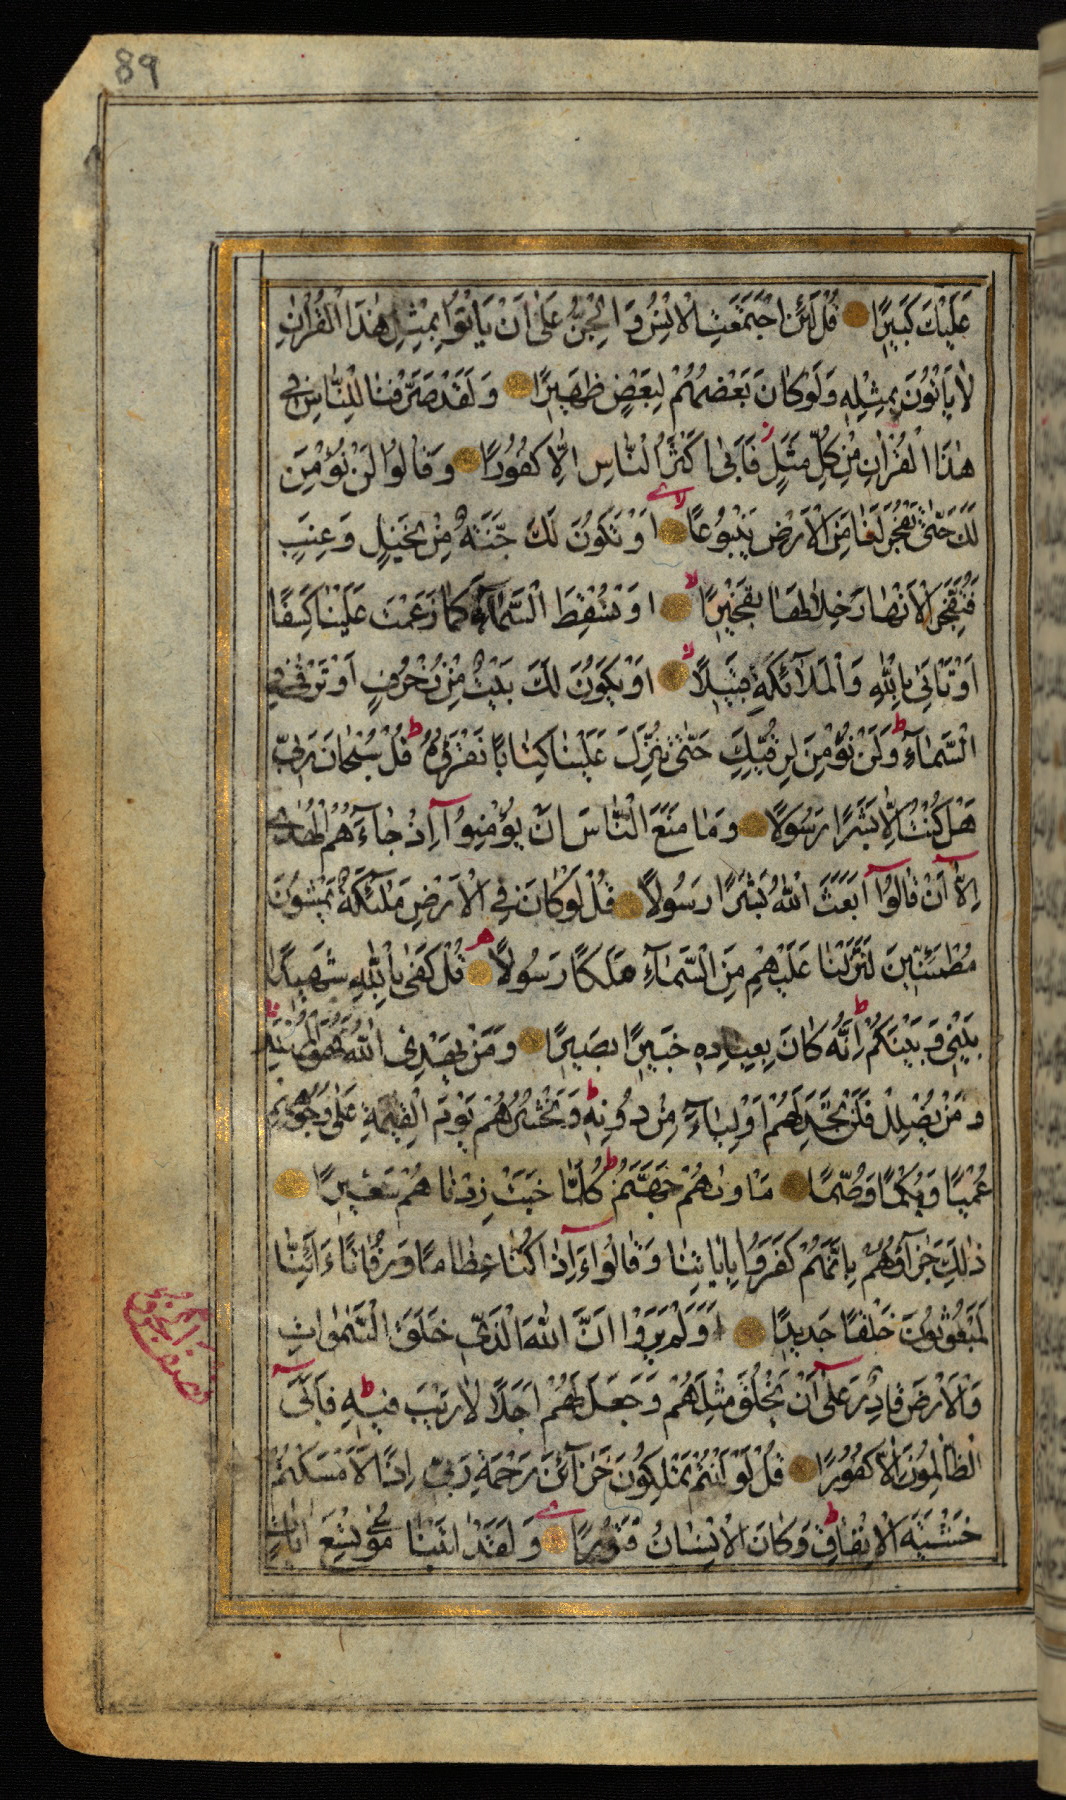 89
عَلَيْكَ كَبِيرًا قُلْ لَئِنِ اجْتَمَعَتِ الْاِنْسُ وَالْجِنُّ عَلٰى اَنْ يَاْتُوا بِمِثْلِ هٰذَا الْقُرْاٰنِ
لَا يَاْتُونَ بِمِثْلِهِ وَلَوْ كَانَ بَعْضُهُمْ لِبَعْضٍ ظَهِيرًا وَلَقَدْ صَرَّفْنَا لِلنَّاسِ فِي
هٰذَا الْقُرْاٰنِ مِنْ كُلِّ مَثَلٍ فَاَبٰى اَكْثَرُ النَّاسِ اِلَّا كُفُورًا وَقَالُوا لَنْ نُؤْمِنَ
لَكَ حَتّٰى تَفْجُرَ لَنَا مِنَ الْاَرْضِ يَنْبُوعًا اَوْ تَكُونَ لَكَ جَنَّةٌ مِنْ نَخِيلٍ وَعِنَبٍ
فَتُفَجِّرَ الْاَنْهَارَ خِلَالَهَا تَفْجِيرًا اَوْ تُسْقِطَ السَّمَآءَ كَمَا زَعَمْتَ عَلَيْنَا كِسَفًا
اَوْ تَاْتِيَ بِاللّٰهِ وَالْمَلَآئِكَةِ قَبِيلًا اَوْ يَكُونَ لَكَ بَيْتٌ مِنْ زُخْرُفٍ اَوْ تَرْقٰى فِي
السَّمَآءِ وَلَنْ نُؤْمِنَ لِرُقِيِّكَ حَتّٰى تُنَزِّلَ عَلَيْنَا كِتَابًا نَقْرَؤُهُ قُلْ سُبْحَانَ رَبِّي
هَلْ كُنْتُ اِلَّا بَشَرًا رَسُولًا وَمَا مَنَعَ النَّاسَ اَنْ يُؤْمِنُوٓا اِذْ جَآءَهُمُ الْهُدٰى
اِلَّآ اَنْ قَالُوٓا اَبَعَثَ اللّٰهُ بَشَرًا رَسُولًا قُلْ لَوْ كَانَ فِي الْاَرْضِ مَلٰئِكَةٌ يَمْشُونَ
مُطْمَئِنِّينَ لَنَزَّلْنَا عَلَيْهِمْ مِنَ السَّمَآءِ مَلَكًا رَسُولًا قُلْ كَفٰى بِاللّٰهِ شَهِيدًا
بَيْنِي وَبَيْنَكُمْ اِنَّهُ كَانَ بِعِبَادِهِ خَبِيرًا بَصِيرًا وَمَنْ يَهْدِي اللّٰهُ فَهُوَ الْمُهْتَدِ
وَمَنْ يُضْلِلْ فَلَنْ تَجِدَ لَهُمْ اَوْلِيَآءَ مِنْ دُونِهِ وَنَحْشُرُهُمْ يَوْمَ الْقِيٰمَةِ عَلٰى وُجُوهِهِمْ
عُمْيًا وَبُكْمًا وَصُمًّا مَاْوٰىهُمْ جَهَنَّمُ كُلَّمَا خَبَتْ زِدْنَاهُمْ سَعِيرًا
ذٰلِكَ جَزَآؤُهُمْ بِاَنَّهُمْ كَفَرُوا بِاٰيَاتِنَا وَقَالُوٓا ءَاِذَا كُنَّا عِظَامًا وَرُفَاتًا ءَاِنَّا
لَمَبْعُوثُونَ خَلْقًا جَدِيدًا اَوَلَمْ يَرَوْا اَنَّ اللّٰهَ الَّذِي خَلَقَ السَّمٰوَاتِ
وَالْاَرْضَ قَادِرٌ عَلٰٓى اَنْ يَخْلُقَ مِثْلَهُمْ وَجَعَلَ لَهُمْ اَجَلًا لَا رَيْبَ فِيهِ فَاَبَى
الظَّالِمُونَ اِلَّا كُفُورًا قُلْ لَوْ اَنْتُمْ تَمْلِكُونَ خَزَآئِنَ رَحْمَةِ رَبِّي اِذًا لَاَمْسَكْتُمْ
خَشْيَةَ الْاِنْفَاقِ وَكَانَ الْاِنْسَانُ قَتُورًا وَلَقَدْ اٰتَيْنَا مُوسٰى تِسْعَ اٰيَاتٍ